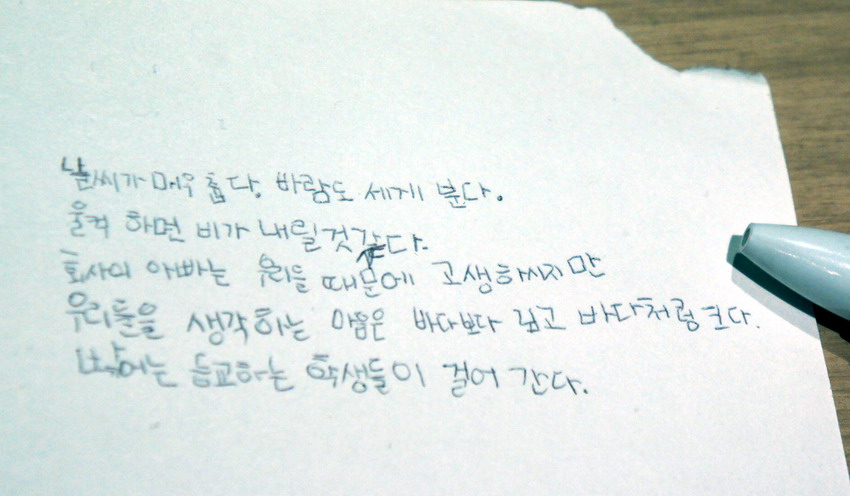 날씨가 매우 춥다. 바람도 세게 분다.
울컥 하면 비가 내릴것같다.
회사의 아빠는 우리들 때문에 고생하시지만
우리들을 생각하는 마음은 바다보다 깊고 바다처럼 크다.
낮에는 등교하는 학생들이 걸어 간다.